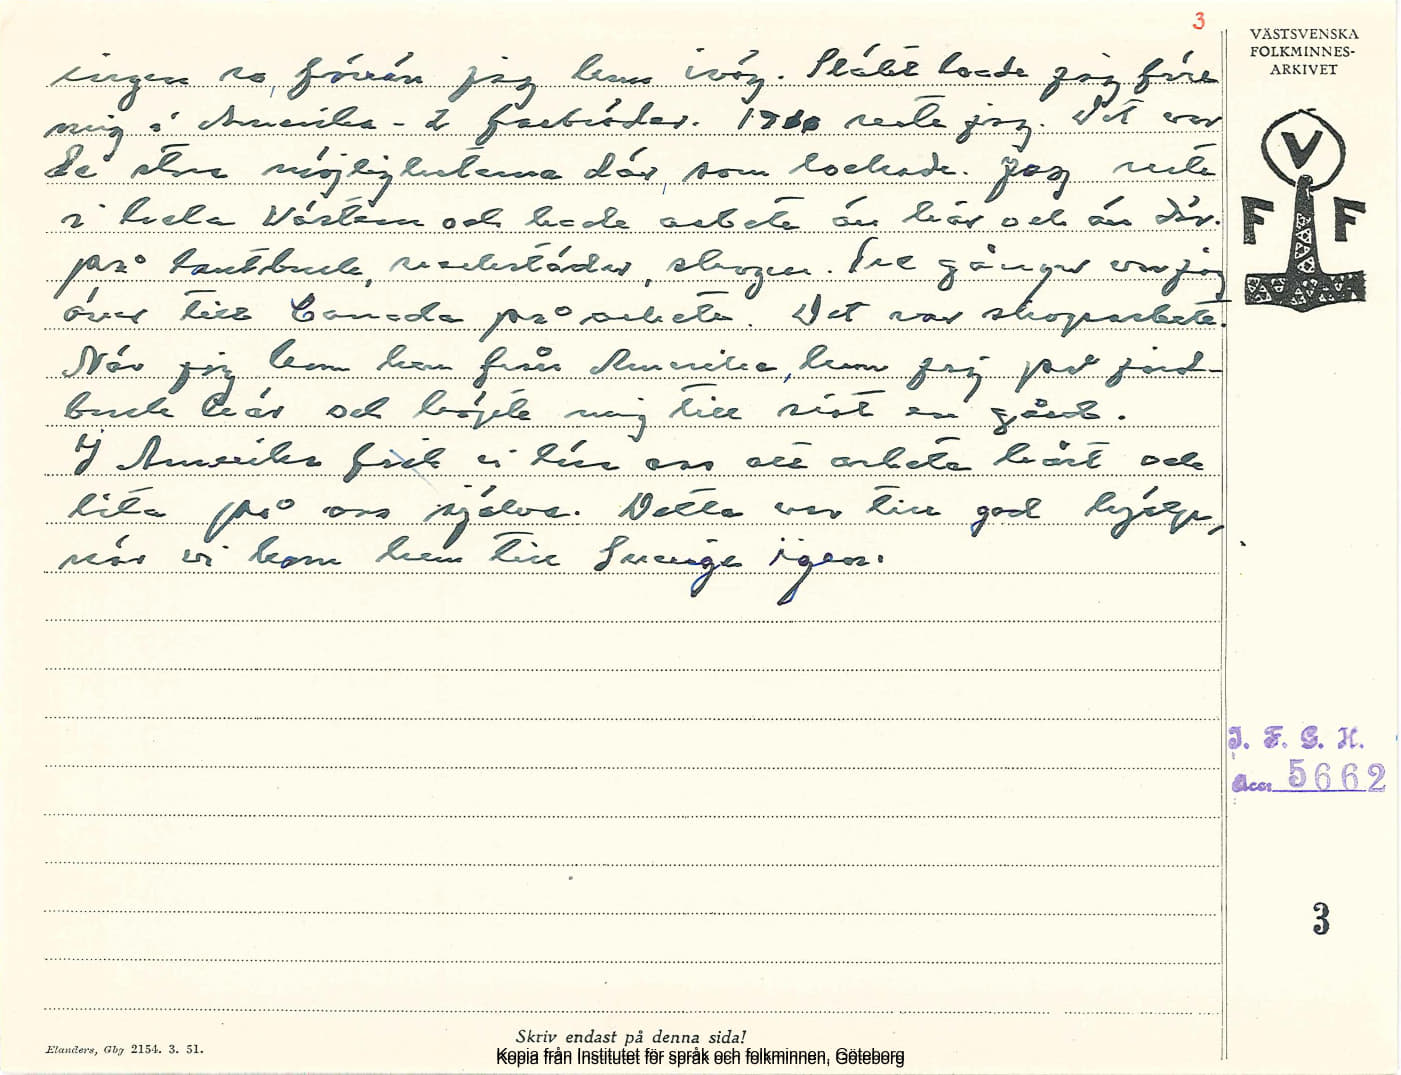 3
VÄSTSVENSKA
FOLKMINNES-
ARKIVET
V
F F
ingen ro, förrän jag kom iväg. Släkt hade jag före
mig i Amerika - 2 farbröder. reste jag. Det var
de stora möjligheterna där, som lockade. Jag reste
i hela Västern och hade arbete än här och än där.
på lantbruk, verkstäder, skogen. Tre gånger var jag
över till Canada på arbete. Det var skogsarbete.
När jag kom hem från Amerika, kom jag på jord-
bruk här och köpte mig till sist en gård.
I Amerika fick vi lära oss att arbeta hårt och
lita på oss själva. Detta var till god hjälp,
när vi kom hem till Sverige igen.
I. F. G. H.
Acc. 5662
3
Skriv endast på denna sida!
Elanders, Gbg 2154. 3. 51.
Kopia från Institutet för språk och folkminnen, Göteborg